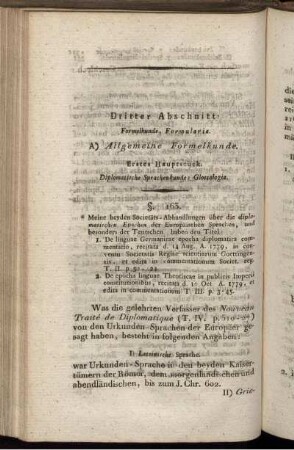 Dritter Abschnitt.
Formelkunde, Formularia.
A) Allgemeine Formelkunde.
Erstes Hauptstück.
Diplomatische Sprachenkunde: Glossologia.
§. 163.
* Meine beyden Societäts-Abhandlungen über die diplo-
matischen Epochen der Europäischen Sprachen, und
besonders der Teutschen, haben den Titel:
1. De linguae Germanicae epocha diplomatica com-
mentatio, recitata d. 14 Aug. A. 1779, in con-
ventu Societatis Regiae scientiarum Gottingen-
sis, et edita in commentationum Societ. orp.
T. II p.
2. De epocha linguae Theotiscae in publicis Imperii
constitutionibus, recitata d. 1. Oct. A. 1779, et
edita in commentationum T. III p. 2-45.
Was die gelehrten Verfasser des Nouveau
Traité de Diplomatique (T. IV. p.
von den Urkunden-Sprachen der Europäer ge-
sagt haben, besteht in folgenden Angaben:
I) Lateinische Sprache
war Urkunden-Sprache in den beyden Kaiser-
tümern der Römer, dem morgenländischen und
abendländischen, bis zum J. Chr. 602.
II) Grie-